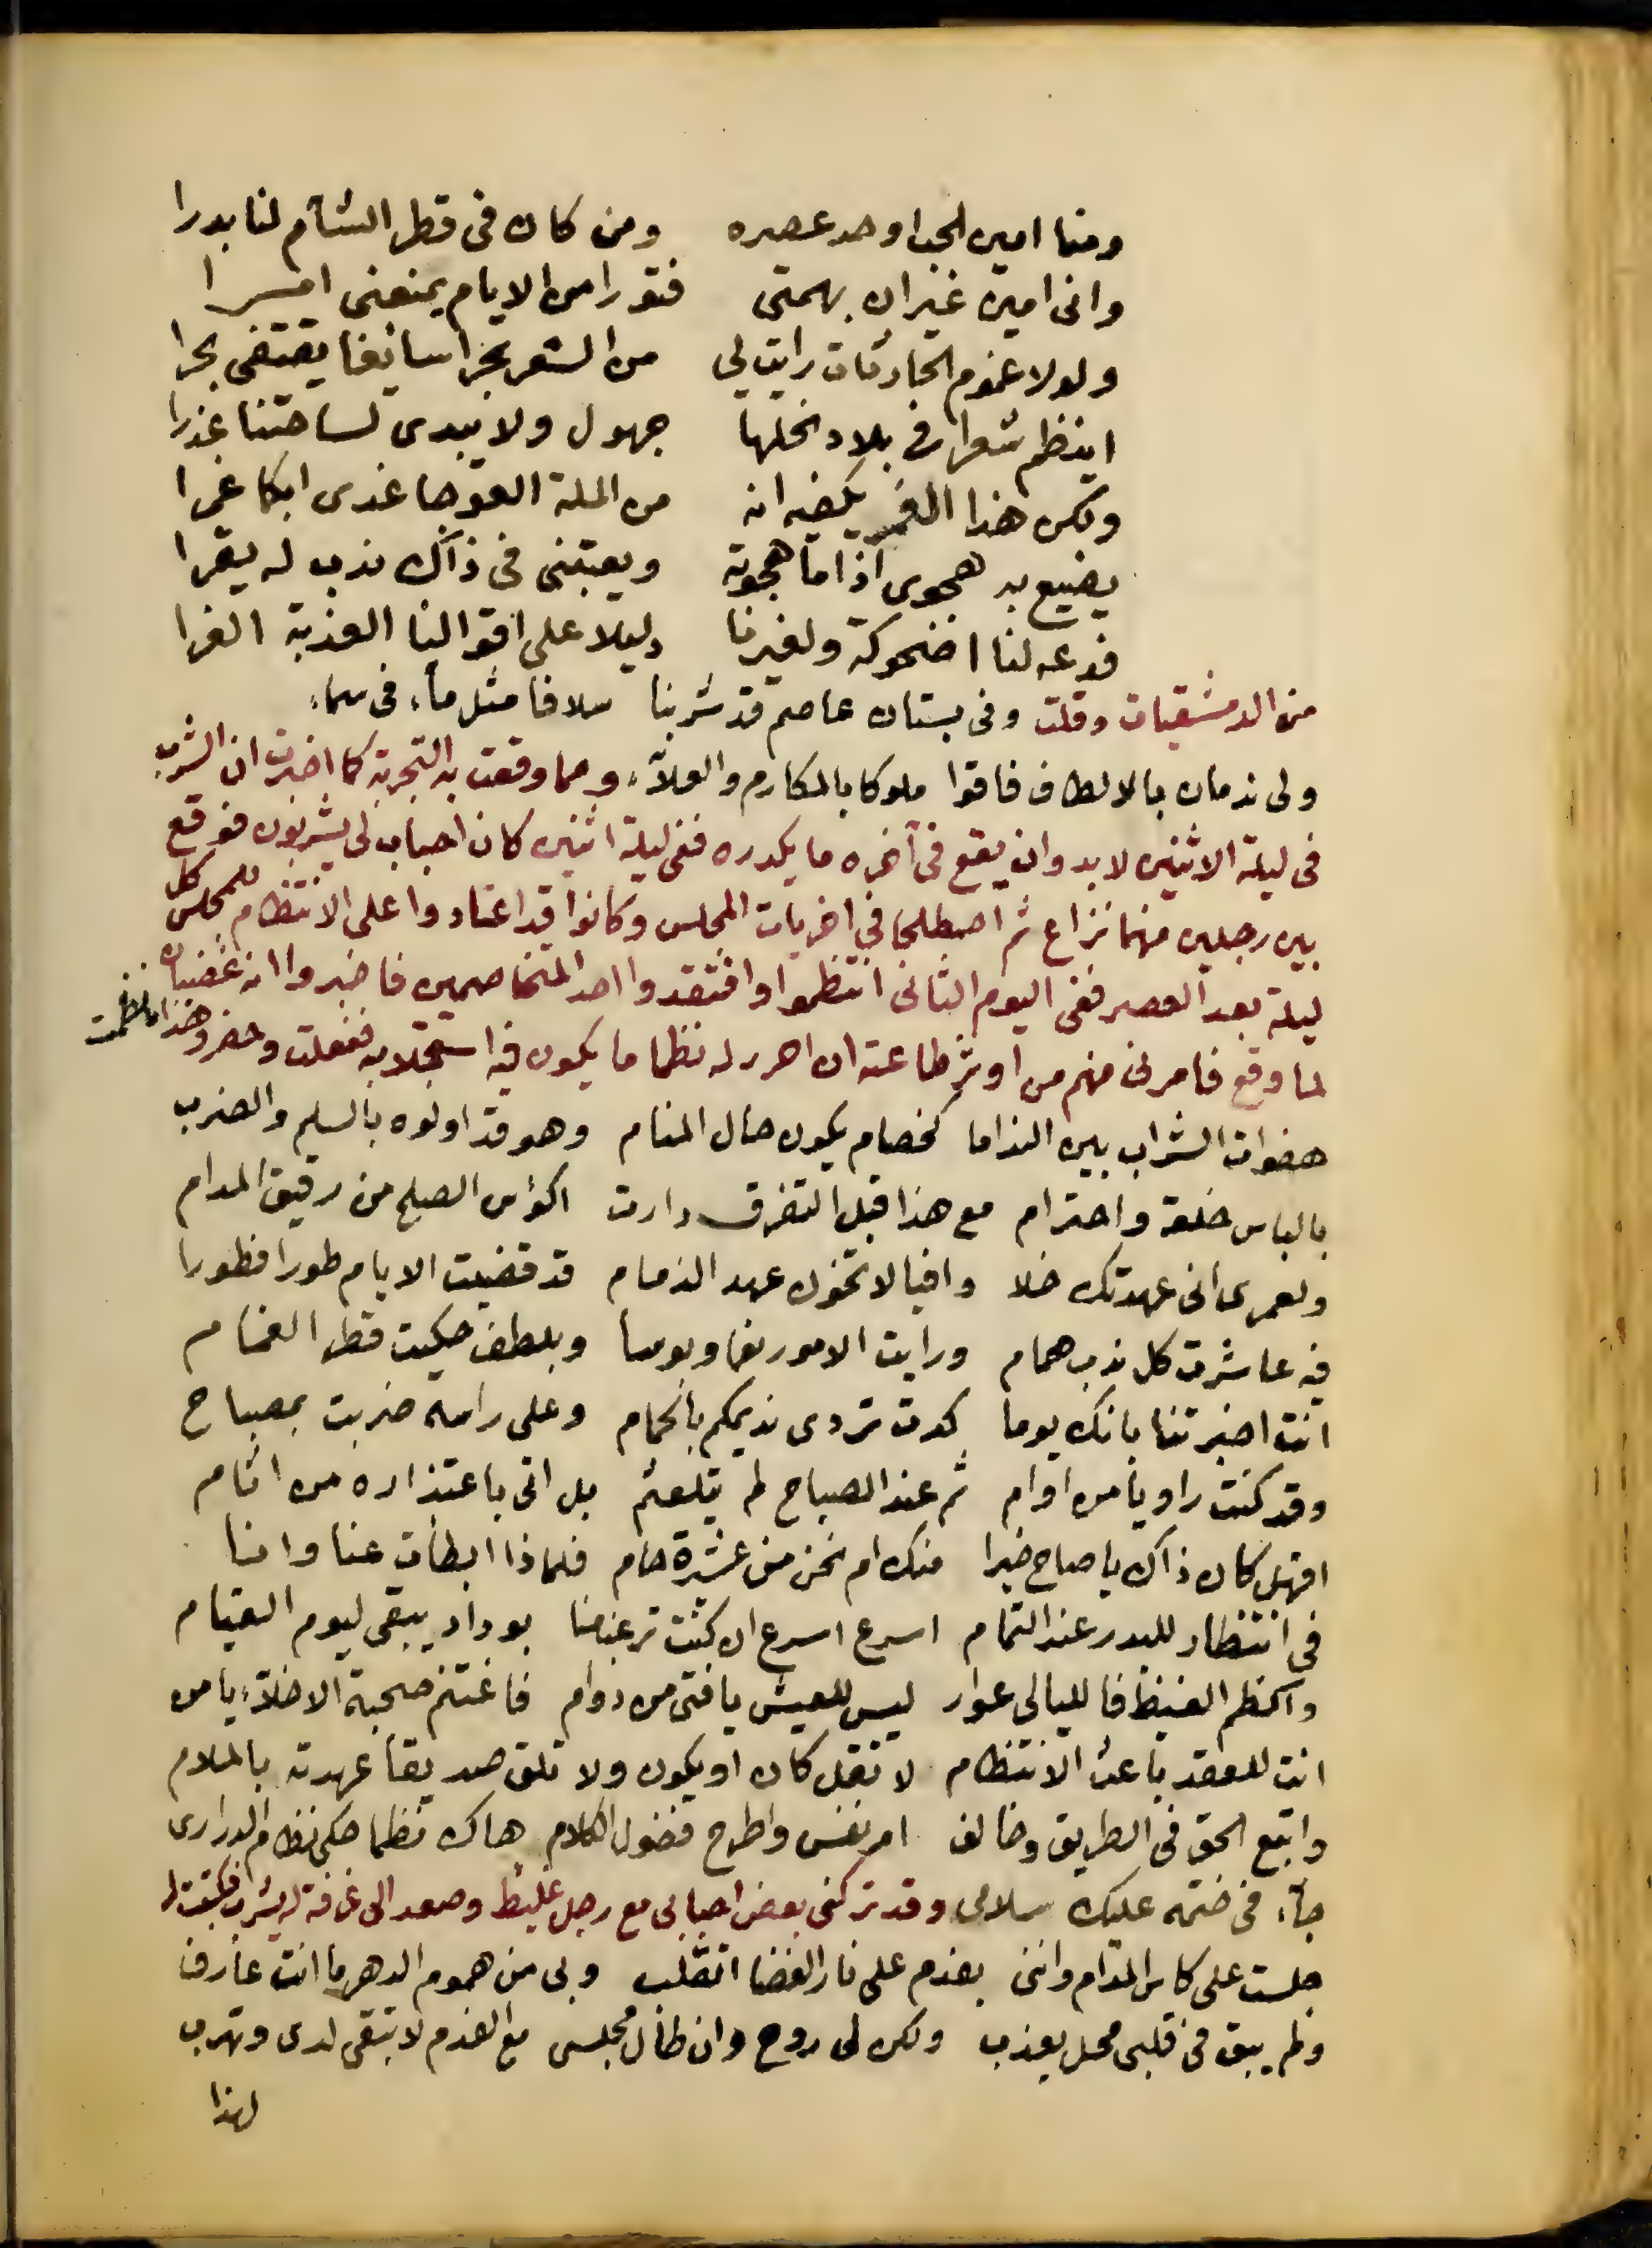 ومنا امين الجند اوحد عصره ومن كان فى قطر الشآم لنا بدرا
وانى امين غير ان بهمتى فتورا من الايام يمنعنى
ولولا غموم الحادثات رايت لى من الشعر بحرا سائغا يقتفى بحرا
اينظم شعرا فى بلاد نحلها جهول ولا يبدى لساحتنا عذرا
ولكن هذا الغمر يكفيه انه من الملة العوجا غدى ابكا غمرا
يضيع به هجوى اذا ما هجوته ويعتبنى فى ذاك ندب له يقرا
فدعه لنا اضحوكة ولغيرنا دليلا على اقوالنا العذبة الغرا
من الدمشقيات وقلت وفى بستان عاصم قد شربنا سلافا مثل ماء فى سماء
ولى ندمان بالالطاف فاقوا ملوكا بالمكارم والعلاء ومما وقعت به التجربة كما اخبرت ان الشرب
فى ليلة الاثنين لا بد وان يقع فى آخره ما يكدره ففى ليلة اثنين كان احباب لى يشربون فوقع
بين رجلين منهما نزاع ثم اصطلحا فى اخريات المجلس وكانوا قد اعتادوا على الانتظام للمجلس كل
ليلة بعد العصر ففى اليوم الثانى انتظموا وافتقدوا احد المتخاصمين فاخبروا انه غضبان
لما وقع فامرنى منهم من اوثر طاعته ان احرر له نظما ما يكون فيه استجلابه ففعلت وحضر وهذا ما نظمت
هفوات الشراب بين النداما كخصام يكون حال المنام وهو قد اولوه بالسلم والضرب
بالباس خلعة واحترام مع هذا قبل التفرق دارت اكؤس الصلح من رقيق المدام
ولعمرى انى عهدتك خلا وافيا لا تخون عهد الذمام قد قضيت الايام طورا فطورا
فيه عاشرت كل ندب همام ورايت الامور نعما وبوسا وبلطف حكيت قطر الغمام
انت اخبرتنا بانك يوما كدت تردى نديمكم بالحمام وعلى راسه ضربت بمصباح
وقد كنت راويا من اوام ثم عند الصباح لم يتلعثم بل اتى باعتذاره من اثام
افهل كان ذاك يا صاح خيرا منك ام نحن من عشرة حام فلماذا ابطأت عنا وانا
فى انتظار للبدر عند التمام اسرع اسرع ان كنت ترغب منا بوداد يبقى ليوم القيام
واكظم الغيظ فالليالى عوار ليس للعيش يا فتى من دوام فاغتنم صحبة الاخلاء يا من
انت للعقد باعث الانتظام لا تقل كان او يكون ولا تلق صديقا عهدته بالملام
واتبع الحق فى الطريق وخالف امر نفس واطرح فضول الكلام هاك نظما حكى نظام الدرارى
جاء فى ختمه عليك سلامى وقد تركنى بعض احبابى مع رجل غليظ وصعد الى غرفة له يشرب فكتبت له
جلست على كاس المدام واننى بفدم على نار الغضا اتقلب وبى من هموم الدهر ما انت عارف
ولم يبق فى قلبى محل يعذب ولكن لى روح وان طال مجلسى مع الفدم لا تبقى لدى وتهرب
لهذا